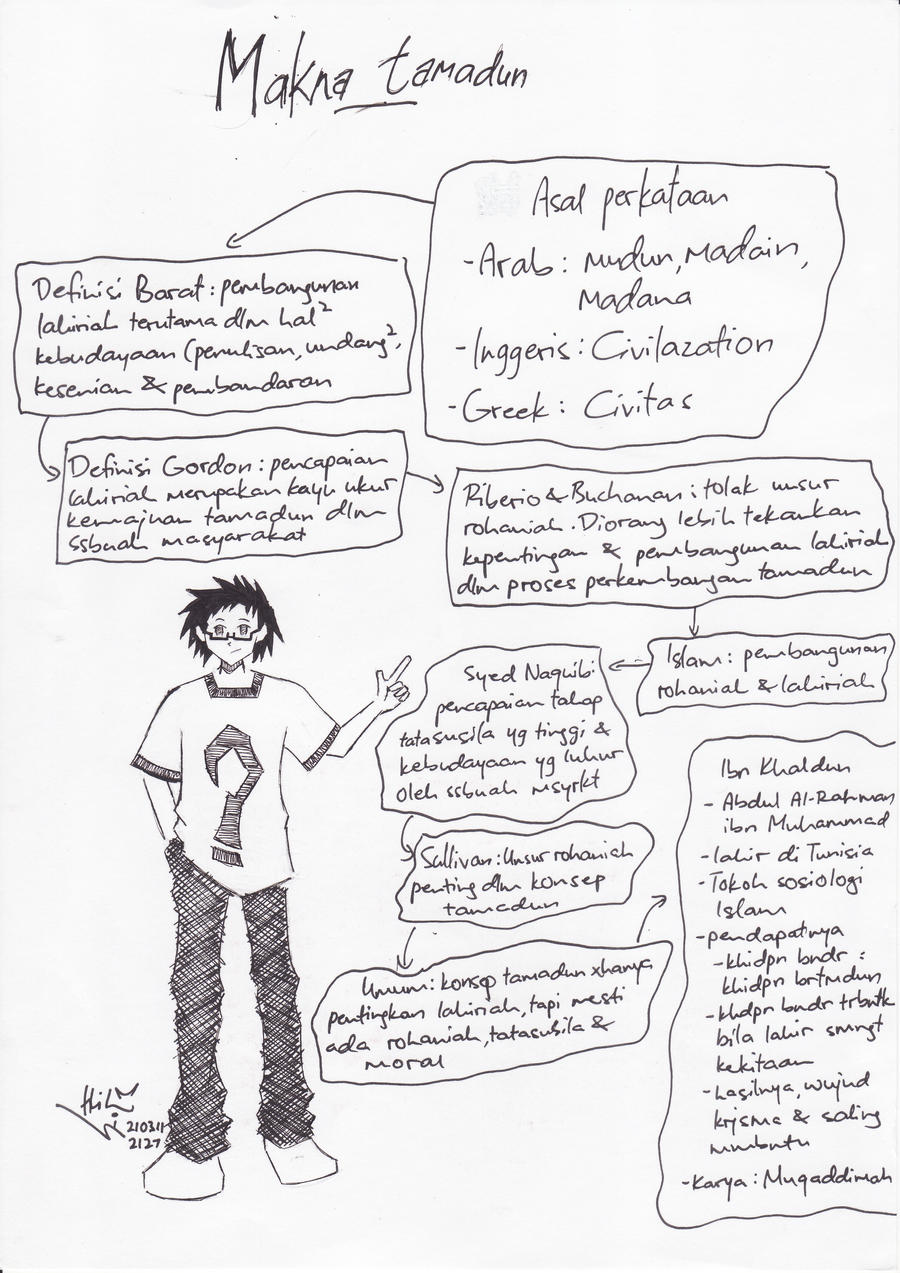 Makna tamadun
Asal perkataan
- Arab : mudun, Madain,
Madana
- Inggeris : Civilazation
- Greek : Civitas
Definisi Barat : pembangunan
lahiriah terutama dlm hal²
kebudayaan (penulisan, undang²,
kesenian & pembandaran
Definisi Gordon : pencapaian
lahiriah merupakan kayu ukur
kemajuan tamadun dlm
ssbuah masyarakat
Riberio & Buchanan : tolak unsur
rohaniah. Diorang lebih tekankan
kepentingan & pembangunan lahiriah
dlm proses perkembangan tamadun
Islam : pembangunan
rohaniah & lahiriah
Syed Naquib :
pencapaian tahap
tatasusila yg tinggi &
kebudayaan yg luhur
oleh ssbuah msyrkt
Sullivan : Unsur rohaniah
penting dlm konsep
tamadun
Umum : konsep tamadun xhanya
pentingkan lahiriah, tapi mesti
ada rohaniah, tatasusila &
moral
Ibn Khaldun
- Abdul Al-Rahman
ibn Muhammad
- lahir di Tunisia
- Tokoh sosiologi
Islam
- pendapatnya
- khidpn bndr :
khidpn brtmdun
- khdpn bndr trbntk
bila lahir smngt
kekitaan
- hasilnya, wujud
krjsma & saling
mmbntu
- Karya : Muqaddimah
210311
2127